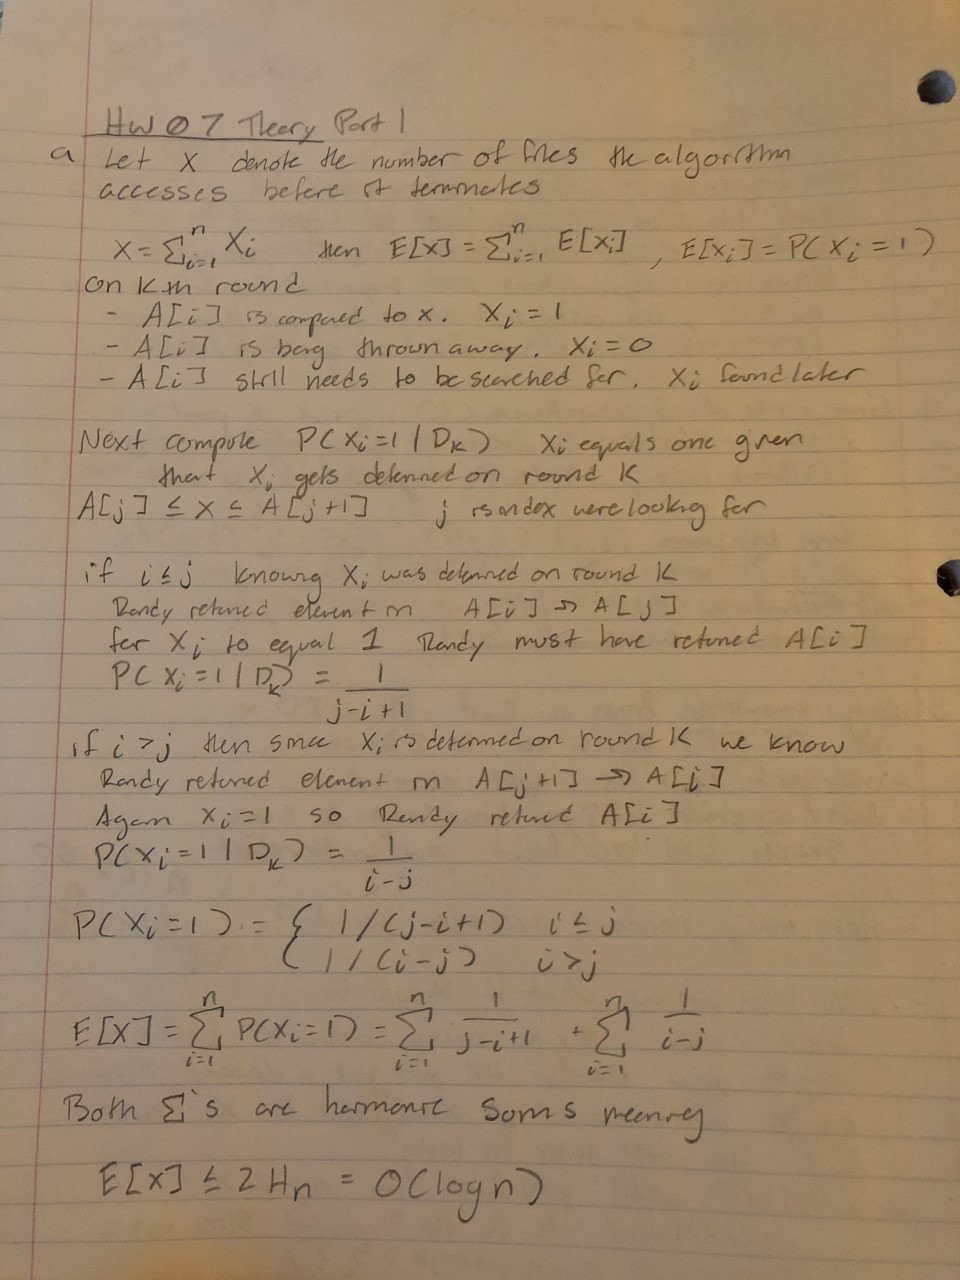 HW 07 Theory Part 1
a Let X denote the number of times the algorithm
accesses before it terminates
X = Σⁿᵢ₌₁ Xᵢ then E[X] = Σⁿᵢ₌₁ E[Xᵢ] , E[Xᵢ] = P(Xᵢ = 1)
on kth round
- A[i] is compared to x. Xᵢ = 1
- A[i] is being thrown away. Xᵢ = 0
- A[i] still needs to be searched for. Xᵢ found later
Next compute P(Xᵢ = 1 | Dₖ) Xᵢ equals one given
that Xᵢ gets determined on round K
A[j] ≤ x ≤ A[j+1] j is index were looking for
if i ≤ j knowing Xᵢ was determined on round K
Randy returned element in A[i] → A[j]
for Xᵢ to equal 1 Randy must have returned A[i]
P(Xᵢ = 1 | Dₖ) = 1/(j-i+1)
if i > j then since Xᵢ is determined on round K we know
Randy returned element in A[j+1] → A[i]
Again Xᵢ = 1 so Randy returned A[i]
P(Xᵢ = 1 | Dₖ) = 1/(i-j)
P(Xᵢ = 1) = { 1/(j-i+1) i ≤ j
1/(i-j) i > j
E[X] = Σⁿᵢ₌₁ P(Xᵢ = 1) = Σⁿᵢ₌₁ 1/(j-i+1) + Σⁿᵢ₌₁ 1/(i-j)
Both Σ's are harmonic soms meaning
E[X] ≤ 2Hₙ = O(log n)